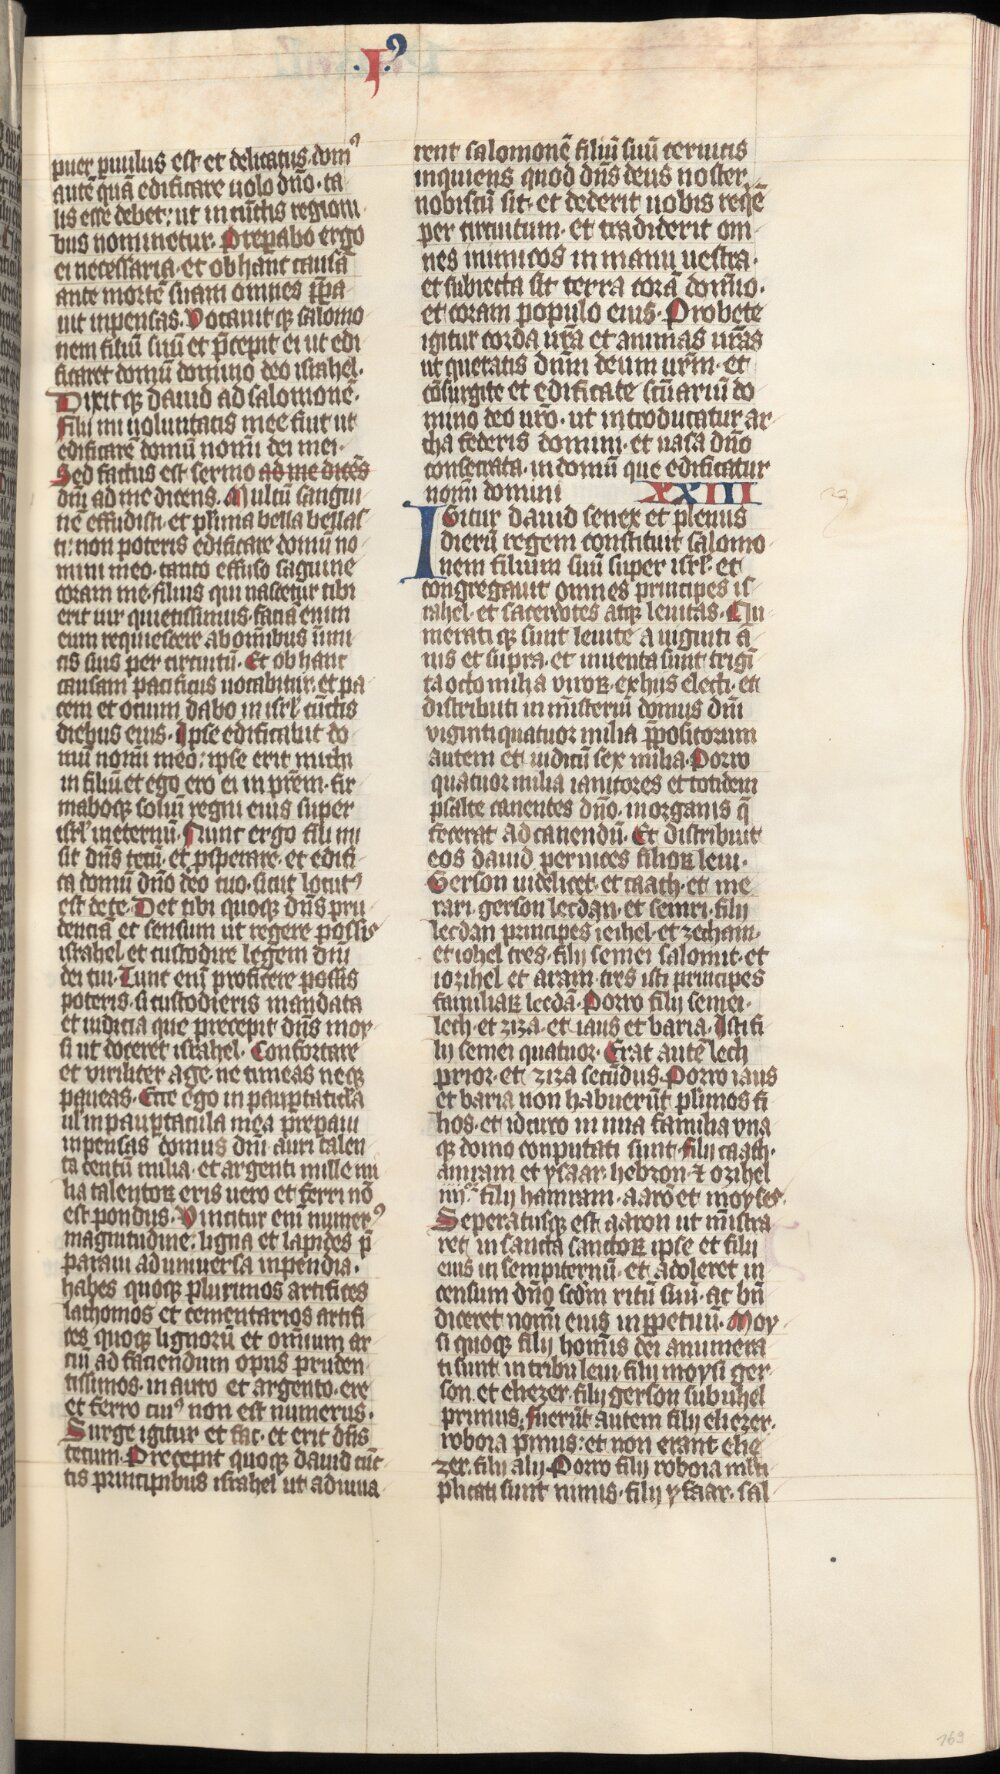 .I.⁹
puer pͣuulus est et delicatus. dom⁹
autē quā edificare uolo dn̄o. ta
lis esse debet: ut in cūctis regioni
bus nominetur. Prepabo ergo
ei necessaria. et ob hanc causā
ante mortē suam omnes p̄pa
uit inpensas. Vocauit qꝫ salomo
nem filiū suū et p̄cepit ei ut edi
ficaret domū domino deo israhel.
Dixit qꝫ dauid ad salomonē.
Fili mi uoluntatis mee fuit ut
edificarē domū nomī dei mei.
Sed factus est sermo ad me dicēs
dnī ad me dicens. Multū sangui
nē effudisti. et pͥlima bella bellas
ti: non poteris edificare domū no
mini meo. tanto effuso sāguine
coram me. filius qui nascetur tibi
erit uir quietissimus. faciā enim
eum requiescere ab omībus inimi
cis suis per circuitū. Et ob hanc
causam pacificus uocabitur. et pa
cem et ocium dabo in isrl̄ cūctis
diebus eius. Ipse edificabit do
mū nomī meo: ipse erit michi
in filiū. et ego ero ei in prēm. fir
maboqꝫ soliū regni eius super
isrl̄ ineternū. Nunc ergo fili mi
sit dn̄s tecū. et ꝓsperare. et edifi
ca domū dn̄o deo tuo. sicut locut⁹
est de te. Det tibi quoqꝫ dn̄s pru
denciā et sensum ut regere possis
israhel et custodire legem dnī
dei tui. Tunc enī proficere possis
poteris. si custodieris mandata
et iudicia que precepit dn̄s moy
si ut doceret israhel. Confortare
et viriliter age. ne timeas neqꝫ
paueas. Ecce ego in pauꝑtatula
ul̄ in pauꝑtacula mea prepaui
inpensas domus dnī. auri talen
ta centū milia. et argenti mille mi
lia talentoꝝ eris uero et ferri nō
est pondus. Vincitur enī numer⁹
magnitudine. ligna et lapides p̄
paraui ad uniuersa inpendia.
habes quoqꝫ plurimos artifices
lathomos et cementarios artifi
ces quoqꝫ lignorū et omnium ar
ciū ad faciendum opus pruden
tissimos. in auro et argento. ere
et ferro cui⁹ non est numerus.
Surge igitur et fac. et erit dn̄s
tecum. Precepit quoqꝫ dauid cūc
tis principibus israhel ut adiuua
rent salomonē filiū suū cernitis
inquiens quod dn̄s deus noster
nobiscū sit. et dederit uobis reqē
per circuitum. et tradiderit om
nes inimicos in manu uestra.
et subiecta sit terra corā domīo.
et coram populo eius. Probete
igitur corda ur̄a et animas ur̄as
ut queratis dn̄m deum ur̄m. et
cōsurgite et edificate scūariū do
mino deo ur̄o. ut introducatur ar
cha federis domini. et uasa dn̄o
consecrata. in domū que edificatur
nomī domini XXIII
Igitur dauid senex et plenus
dierū regem constituit salomo
nem filium suū super isrl̄. et
congregauit omnes principes is
rahel. et sacerdotes atqꝫ leuitas. Nu
merati qꝫ sunt leuite a uiginti ā
nis et supra. et inuenta sunt trigī
ta octo milia viroꝝ. ex hiis electi. et
distributi in mīsteriū domus dnī
viginti quatuor milia. p̄positorum
autem et iudicū sex milia. Porro
quatuor milia ianitores et totidem
psalte canentes dn̄o. in organis q̄
fecerat ad canendū. Et distribuit
eos dauid per uices filioꝝ leui.
Gerson uidelicet. et caath. et me
rari. gerson leedan. et semei. filij
leedan princeps ieihel. et zecham.
et iohel tres. filij semei salomit. et
iozihel et aram. tres isti principes
familiaꝝ leedā. Porro filij semei.
lech. et ziza. et iaus et baria. Isti fi
lij semei quatuor. Erat autē lech
prior. et ziza secūdus. Porro iaus
et baria non habuerūt plimos fi
lios. et idcirco in una familia vna
qꝫ domo conputati sunt. filij caath.
amram et ysaar. hebron. ⁊ ozihel
iiij. filij hamram. aarō et moyses.
Seperatusqꝫ est aaron ut mīstra
ret in sancta sanctoꝝ ipse et filij
eius in sempiternū. et adoleret in
censum dn̄o scd̄m ritū suū. ac bn̄
diceret nomī eius in ꝑpetuū. Moy
si quoqꝫ filij homīs dei anumera
ti sunt in tribu leui. filij moysi ger
son. et eliezer. filij gerson subuhel
primus. fuerūt autem filij eliezer.
robora pͥmus: et non erant elie
zer. filij alij. Porro filij roboia mlti
plicati sunt nimis. filij ysaar. sal
23
169